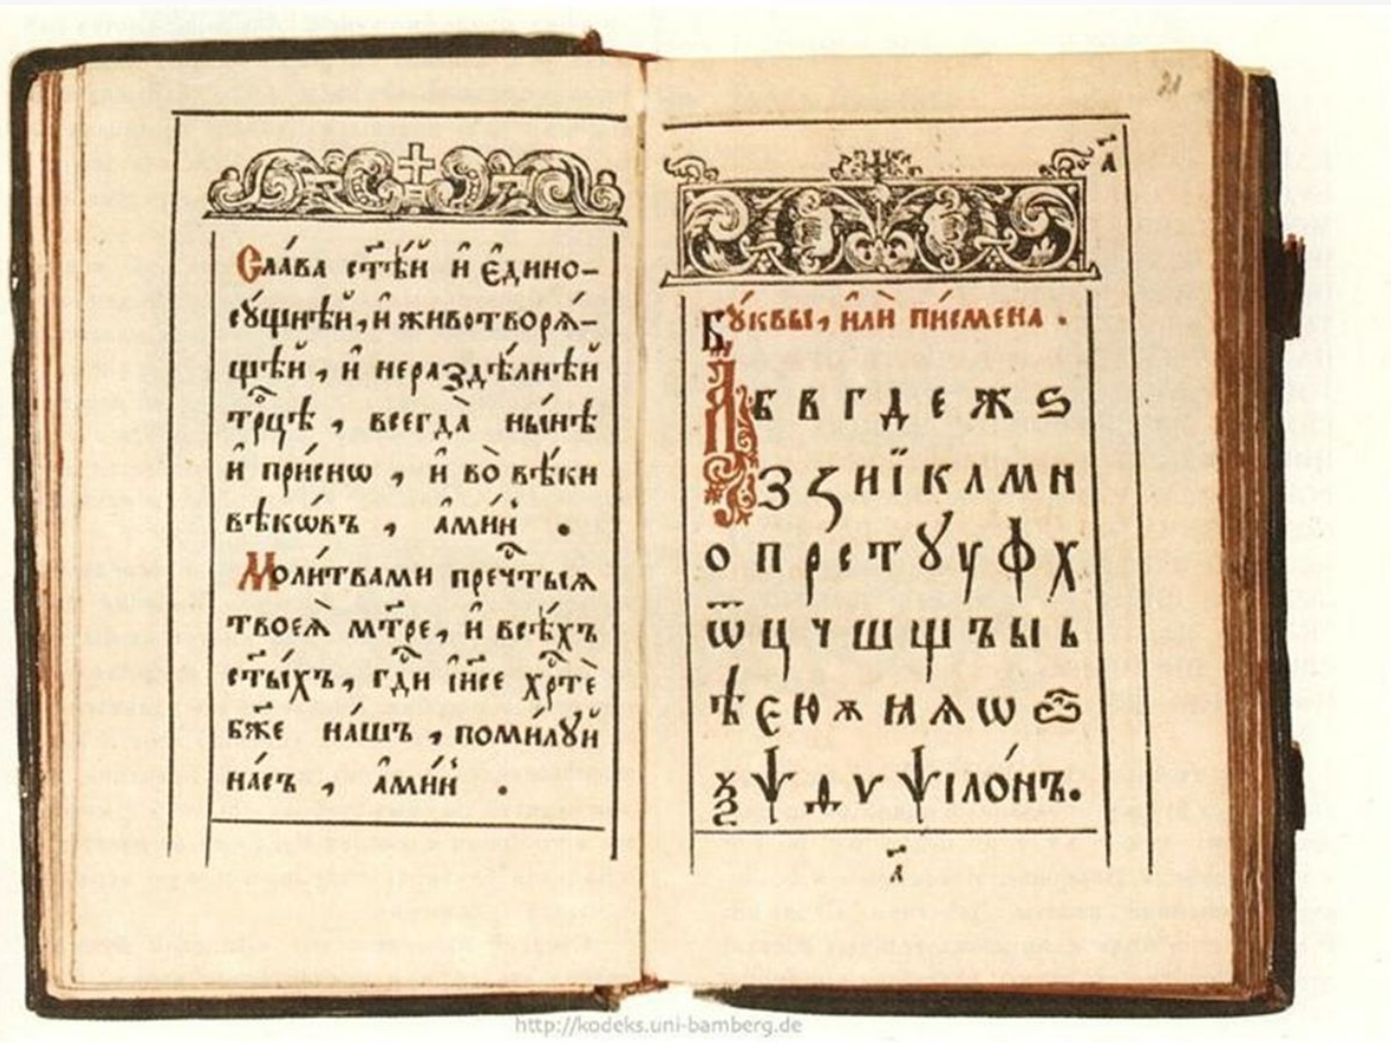 Сла́ва ст҃ѣ́й и҆ є҆дино-
сꙋ́щнѣй, и҆ животворѧ́-
щѣй , и҆ нераздѣ́лнѣй
трⷪ҇цѣ , всегда̀ ны́нѣ
и҆ при́снѡ , и҆ во̀ вѣ́ки
вѣкѡ́въ , а҆ми́нь .
Моли́твами пречⷭ҇тыѧ
твоеѧ̀ мт҃ре, и҆ всѣ́хъ
ст҃ы́хъ , гдⷭ҇и і҆и҃се хрⷭ҇тѐ
бж҃е на́шъ , поми́лꙋй
на́съ , а҆ми́нь .
21
а҃
Бꙋ́квы, и҆лѝ пи́смена .
А б в г д е ж ѕ
З ꙁ и ї к л м н
о п р с т ꙋ у ф х
ѿ ц ч ш щ ъ ы ь
ѣ є ю ѫ ꙗ ѧ ѡ ѽ
ѯ ѱ ѳ ѵ ѱіло́нъ.
а҃
http://kodeks.uni-bamberg.de